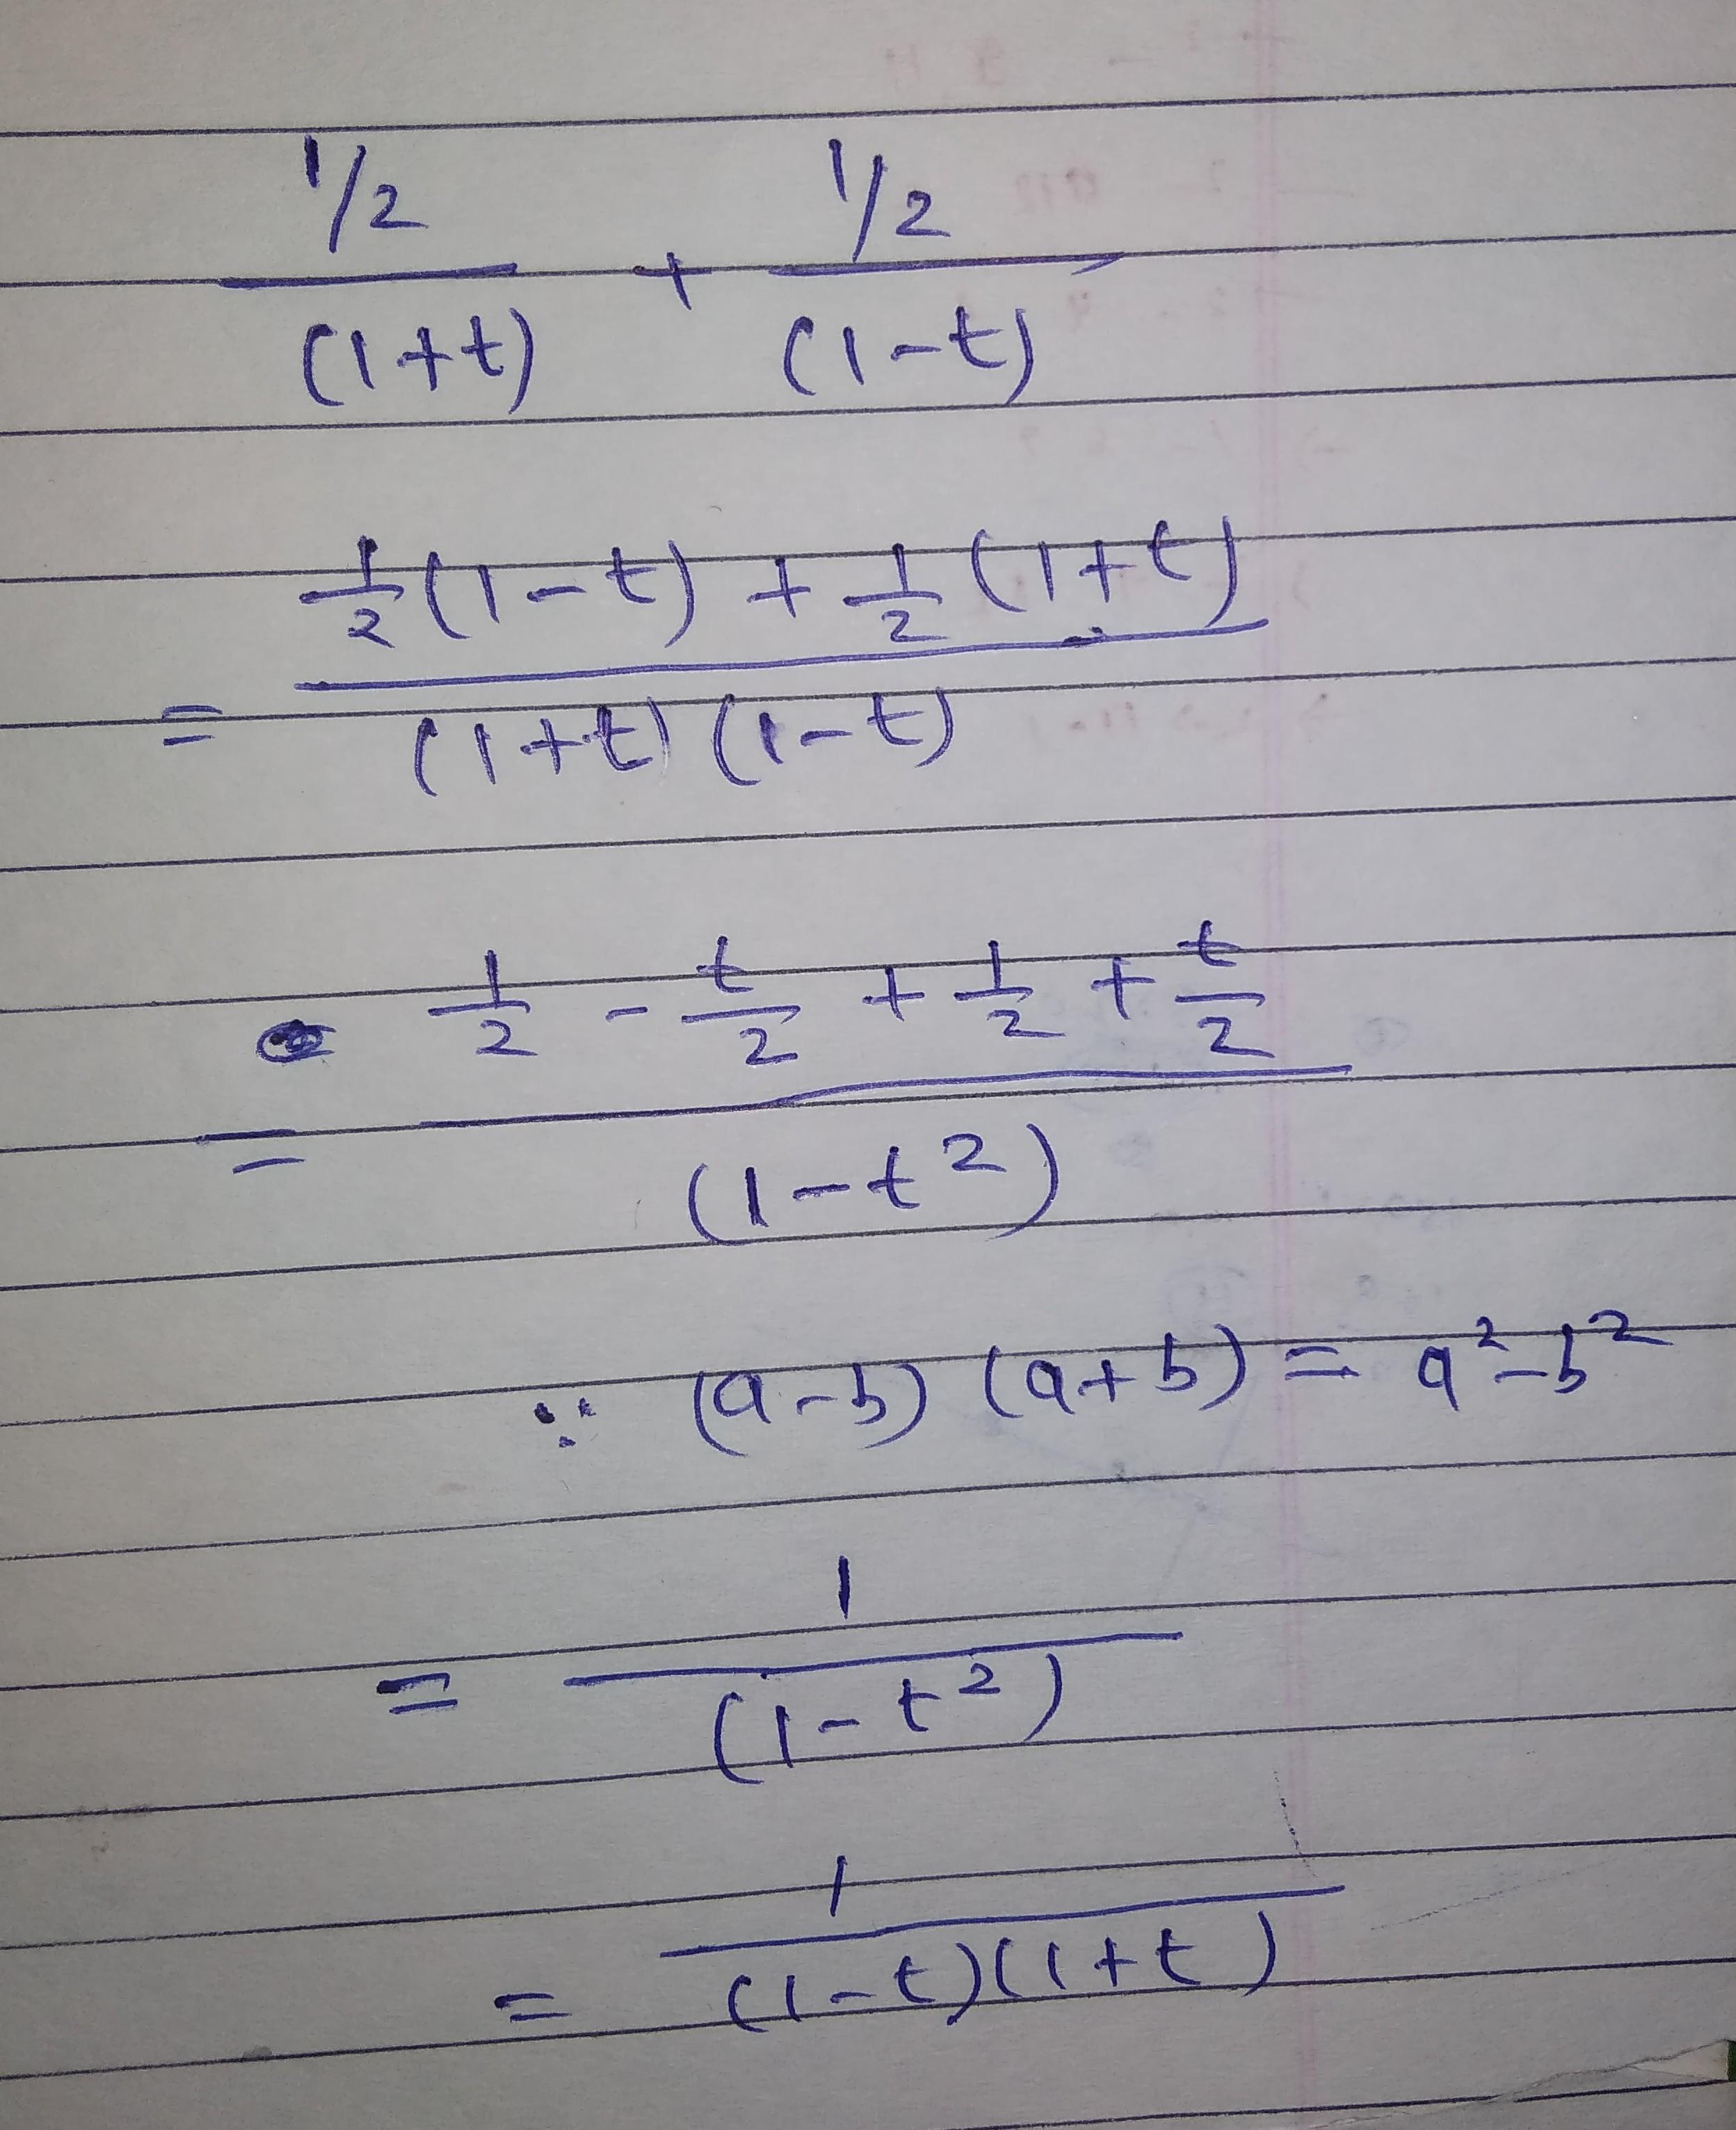 1/2 / (1+t) + 1/2 / (1-t)
= 1/2 (1-t) + 1/2 (1+t) / (1+t) (1-t)
= 1/2 - t/2 + 1/2 + t/2 / (1-t²)
∵ (a-b) (a+b) = a²-b²
= 1 / (1-t²)
= 1 / (1-t)(1+t)